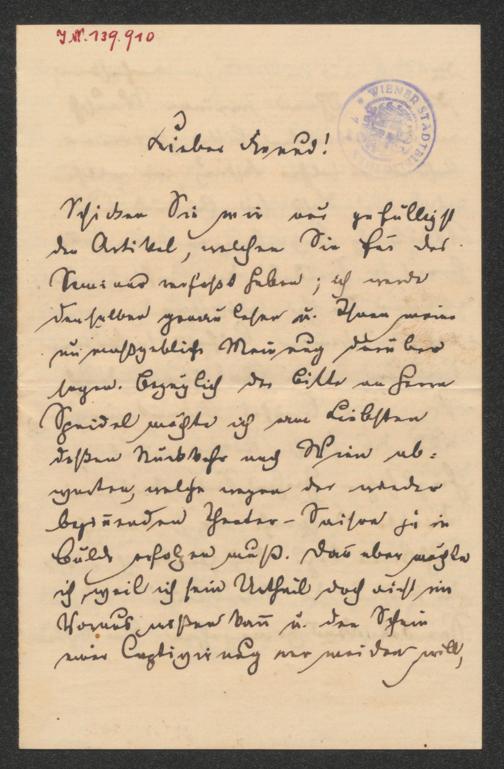 J.N. 139.910
WIENER STADTBI
Lieber Freund!
Schicken Sie mir nur gefälligst
den Artikel, welchen Sie für das
verfaßt haben; ich werde
denselben genau lesen u. Ihnen meine
unmaßgebliche Meinung darüber
sagen. Bezüglich der Bitte an Herrn
Speidel möchte ich am Liebsten
deßen Rückkehr nach Wien ab-
warten, welche wegen der wieder
beginnenden Theater-Saison ja in
Bälde erfolgen muß. Das aber möchte
ich, weil ich sein Urtheil doch nicht im
Voraus wißen kann u. den Schein
einer Captivirung vermeiden will,